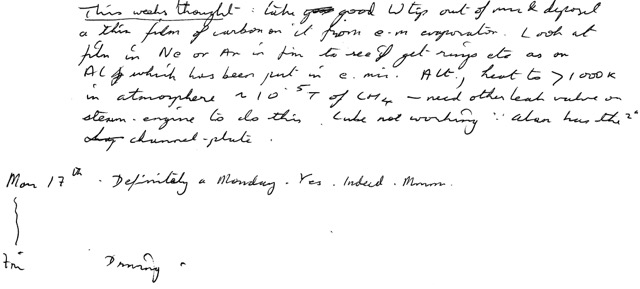 This weeks thought : take good W tip out of mic & deposit
a thin film of carbon on it from e.m evaporator. Look at
film in Ne or Ar in fim to see if get rings etc as on
AL which has been put in e. mic. Alt., heat to >1000K
in atmosphere ~ 10⁻⁵T of CH4 – need other leak valve on
steam-engine to do this. Luke not working ∵ Alan has the 2"
channel-plate.
Mon 17th. Definitely a Monday. Yes. Indeed. Mmmm.
Fri